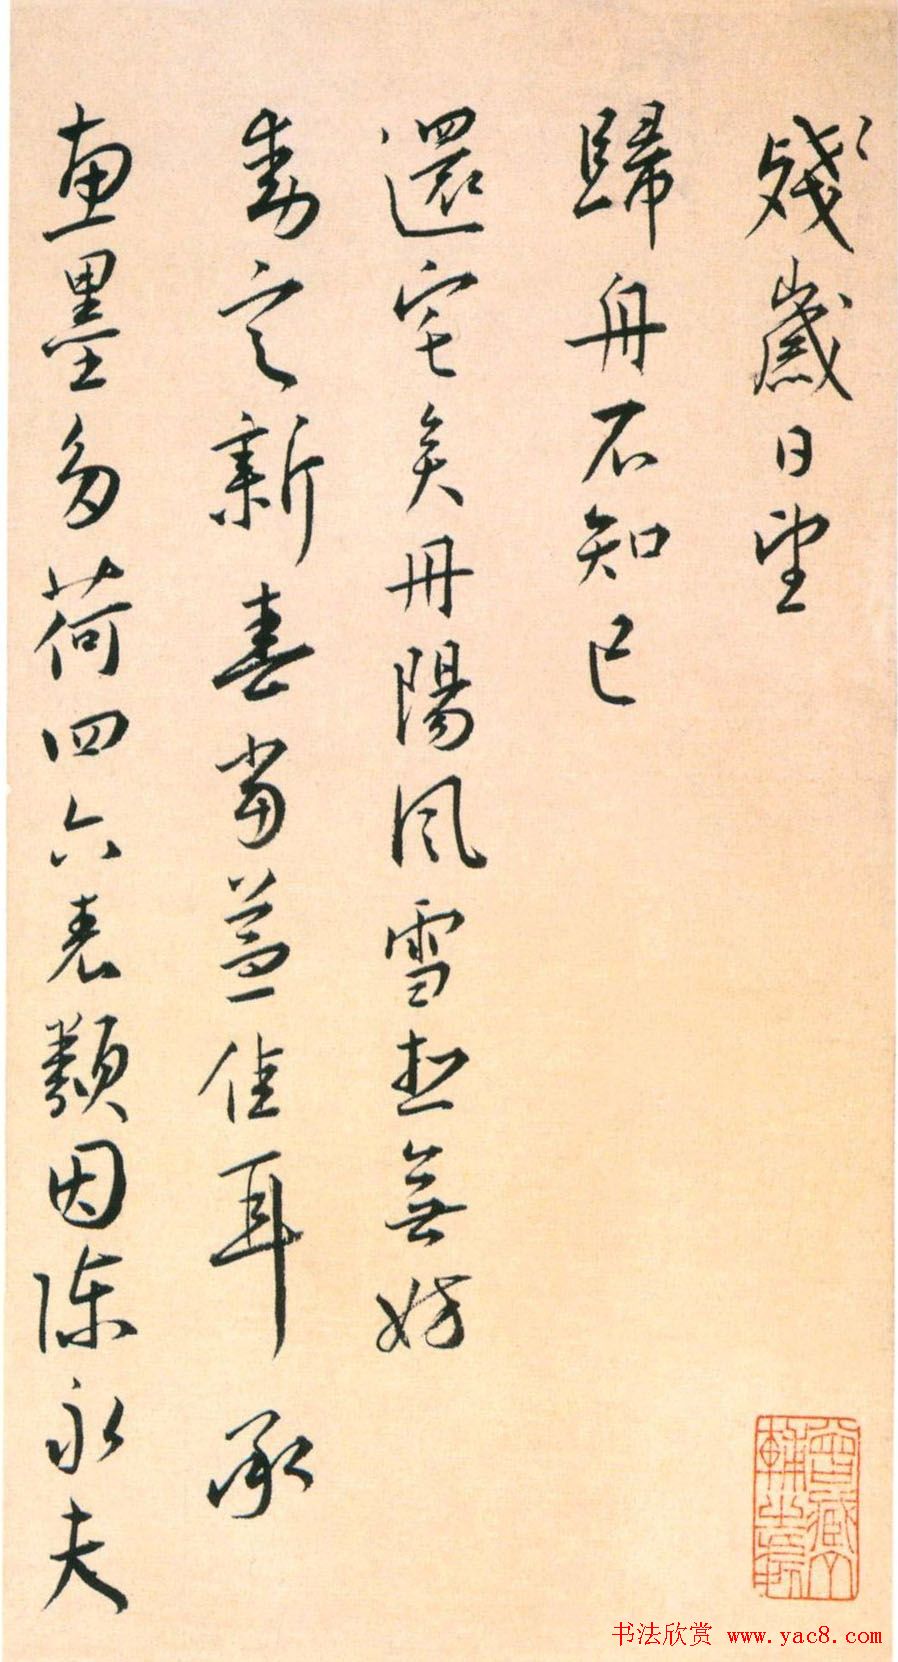 殘歲日望
歸舟不知已
還宅矣丹陽風雪想無妨
動定新喜當益佳耳承
惠墨多荷四六表類因陳永夫
书法欣赏 www.yac8.com